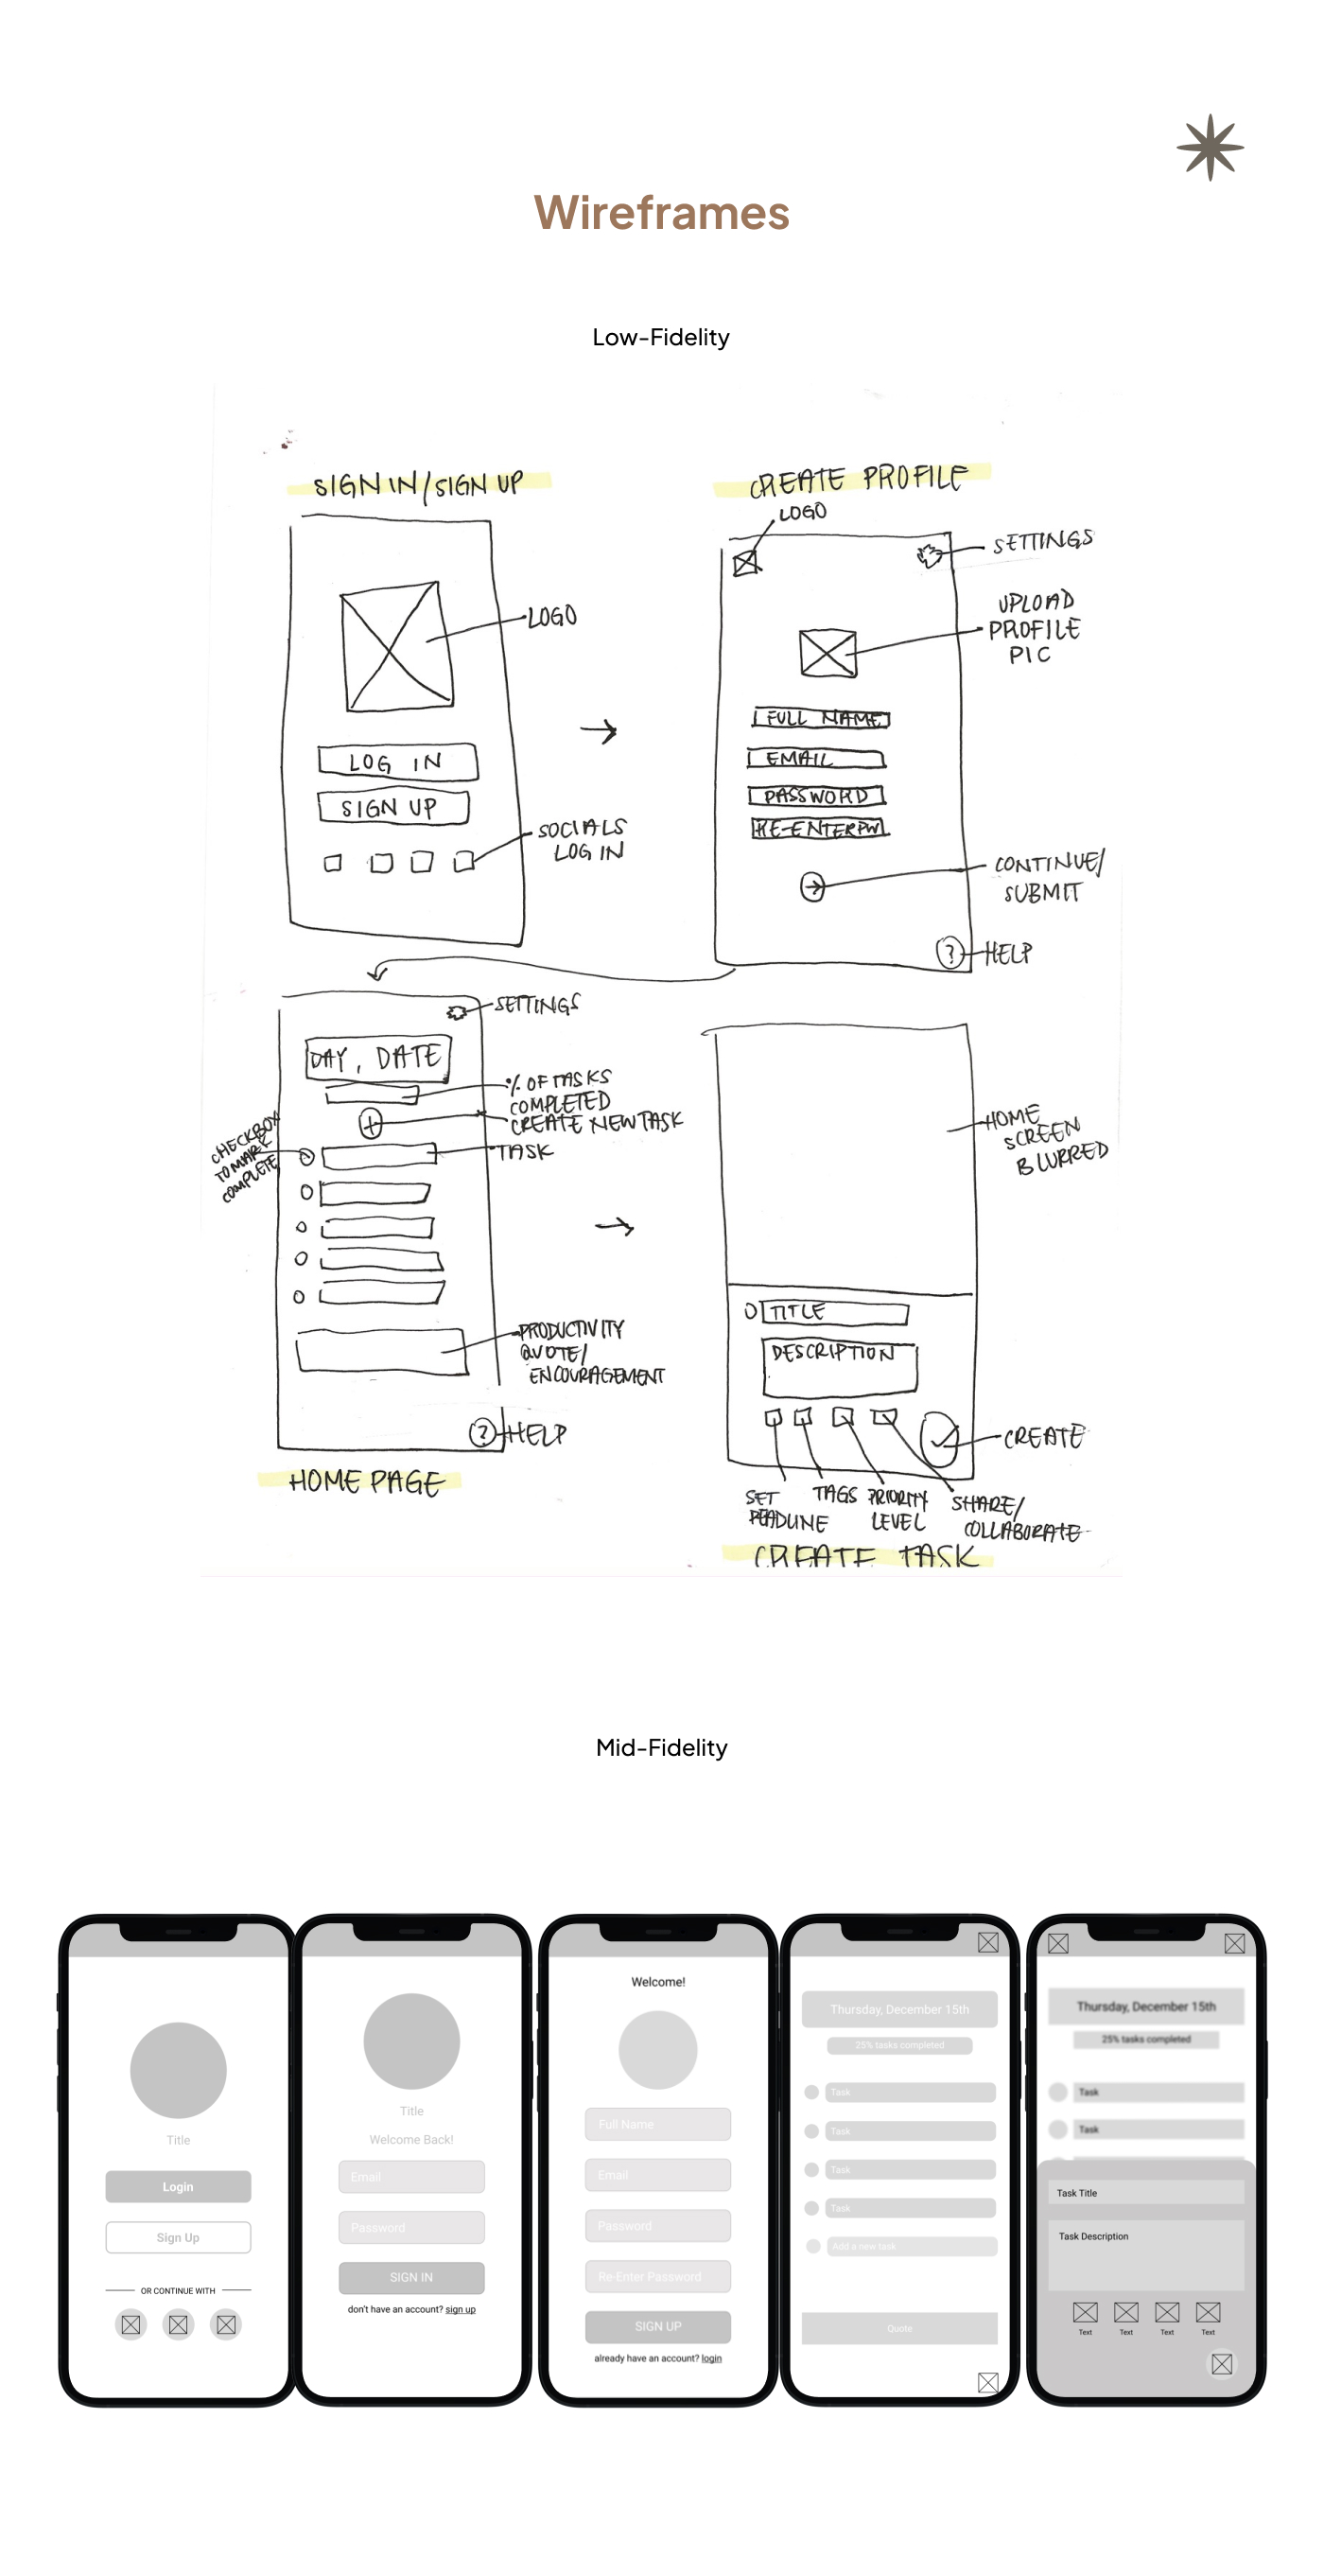 Wireframes
Low-Fidelity
SIGN IN/SIGN UP
LOGO
LOG IN
SIGN UP
SOCIALS
LOG IN
CREATE PROFILE
LOGO
SETTINGS
UPLOAD
PROFILE
PIC
FULL NAME
EMAIL
PASSWORD
RE-ENTER PW
CONTINUE/
SUBMIT
?
HELP
SETTINGS
DAY, DATE
% OF TASKS
COMPLETED
CREATE NEW TASK
CHECKBOX
TO MARK
COMPLETE
TASK
PRODUCTIVITY
QUOTE/
ENCOURAGEMENT
?
HELP
HOME PAGE
HOME
SCREEN
BLURRED
TITLE
DESCRIPTION
CREATE
SET
DEADLINE
TAGS
PRIORITY
LEVEL
SHARE/
COLLABORATE
CREATE TASK
Mid-Fidelity
Title
Login
Sign Up
OR CONTINUE WITH
Title
Welcome Back!
Email
Password
SIGN IN
don't have an account? sign up
Welcome!
Full Name
Email
Password
Re-Enter Password
SIGN UP
already have an account? login
Thursday, December 15th
25% tasks completed
Task
Task
Task
Task
Add a new task
Quote
Thursday, December 15th
25% tasks completed
Task
Task
Task Title
Task Description
Text
Text
Text
Text